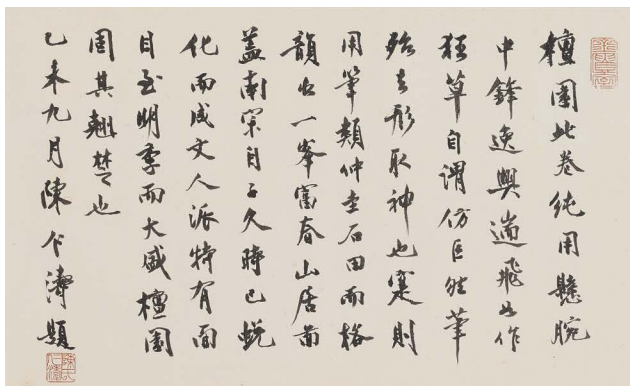 檀園此卷純用懸腕
中鋒逸興遄飛如作
狂草自謂仿巨然筆
殆去形取神也寔則
用筆類仲圭石田而格
韻出一峯富春山居啚
蓋南宋自子久時已蛻
化而成文人派特有面
目至明季而大盛檀園
固其翹楚也
乙未九月陳仁濤題